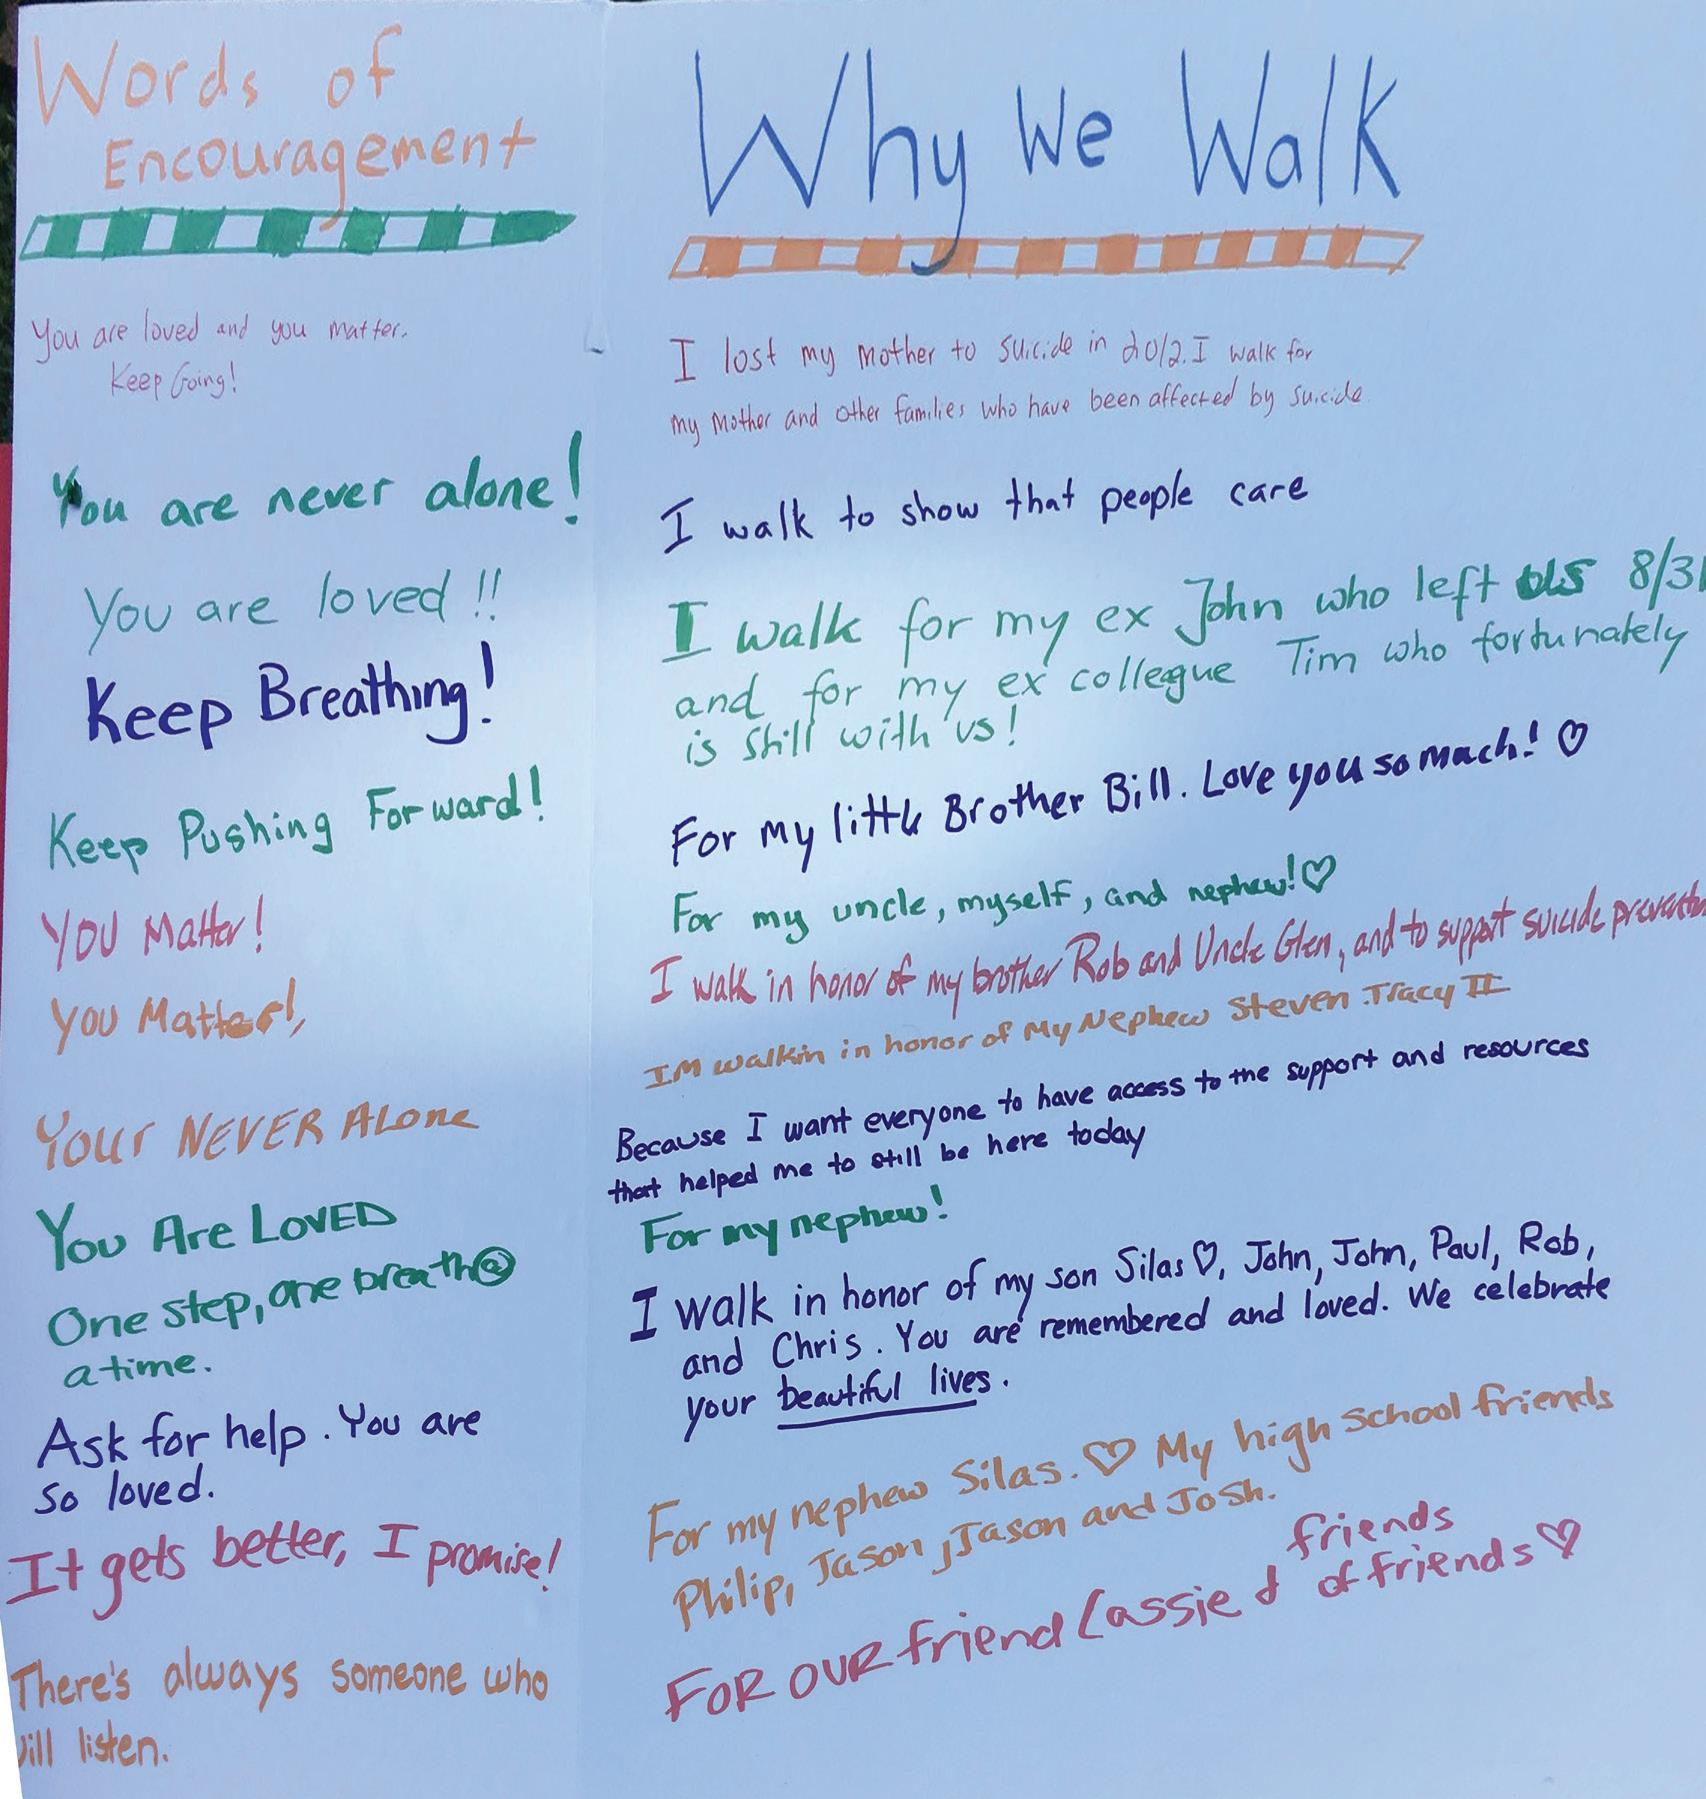 Words of
Encouragement
You are loved and you matter.
Keep Going!
You are never alone!
You are loved!!
Keep Breathing!
Keep Pushing Forward!
You Matter!
You Matter!,
Your NEVER ALONE
You Are LOVED
One step, one breath @
a time.
Ask for help. You are
so loved.
It gets better, I promise!
There's always someone who
will listen.
Why We Walk
I lost my Mother to suicide in 2012. I walk for
my mother and other families who have been affected by suicide
I walk to show that people care
I walk for my ex John who left us 8/31
and for my ex collegue Tim who fortunately
is still with us!
For my little Brother Bill. Love you so mach! ♡
For my uncle, myself, and nephew! ♡
I walk in honor of my brother Rob and Uncle Glen, and to support suicide prevention
IM walkin in honor of My Nephew Steven Tracy II
Because I want everyone to have access to the support and resources
that helped me to still be here today
For my nephew!
I walk in honor of my son Silas ♡, John, John, Paul, Rob,
and Chris. You are remembered and loved. We celebrate
your beautiful lives.
For my nephew Silas. ♡ My high school friends
Philip, Jason, Jason and Josh.
friends
FOR OUR friend Cassie & of friends ♡